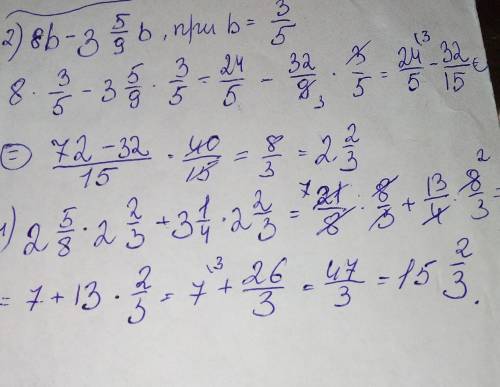 2) 8b - 3 5/9 b, при b = 3/5
8 · 3/5 - 3 5/9 · 3/5 = 24/5 - 32/9 3 · 3/5 = 24/5 3 - 32/15 =
= 72 - 32/15 = 40/15 = 8/3 = 2 2/3
1) 2 5/8 · 2 2/3 + 3 1/4 · 2 2/3 = 7 21/8 · 8/3 + 13/4 · 8/3 2 =
= 7 + 13 · 2/3 = 7 3 + 26/3 = 47/3 = 15 2/3.